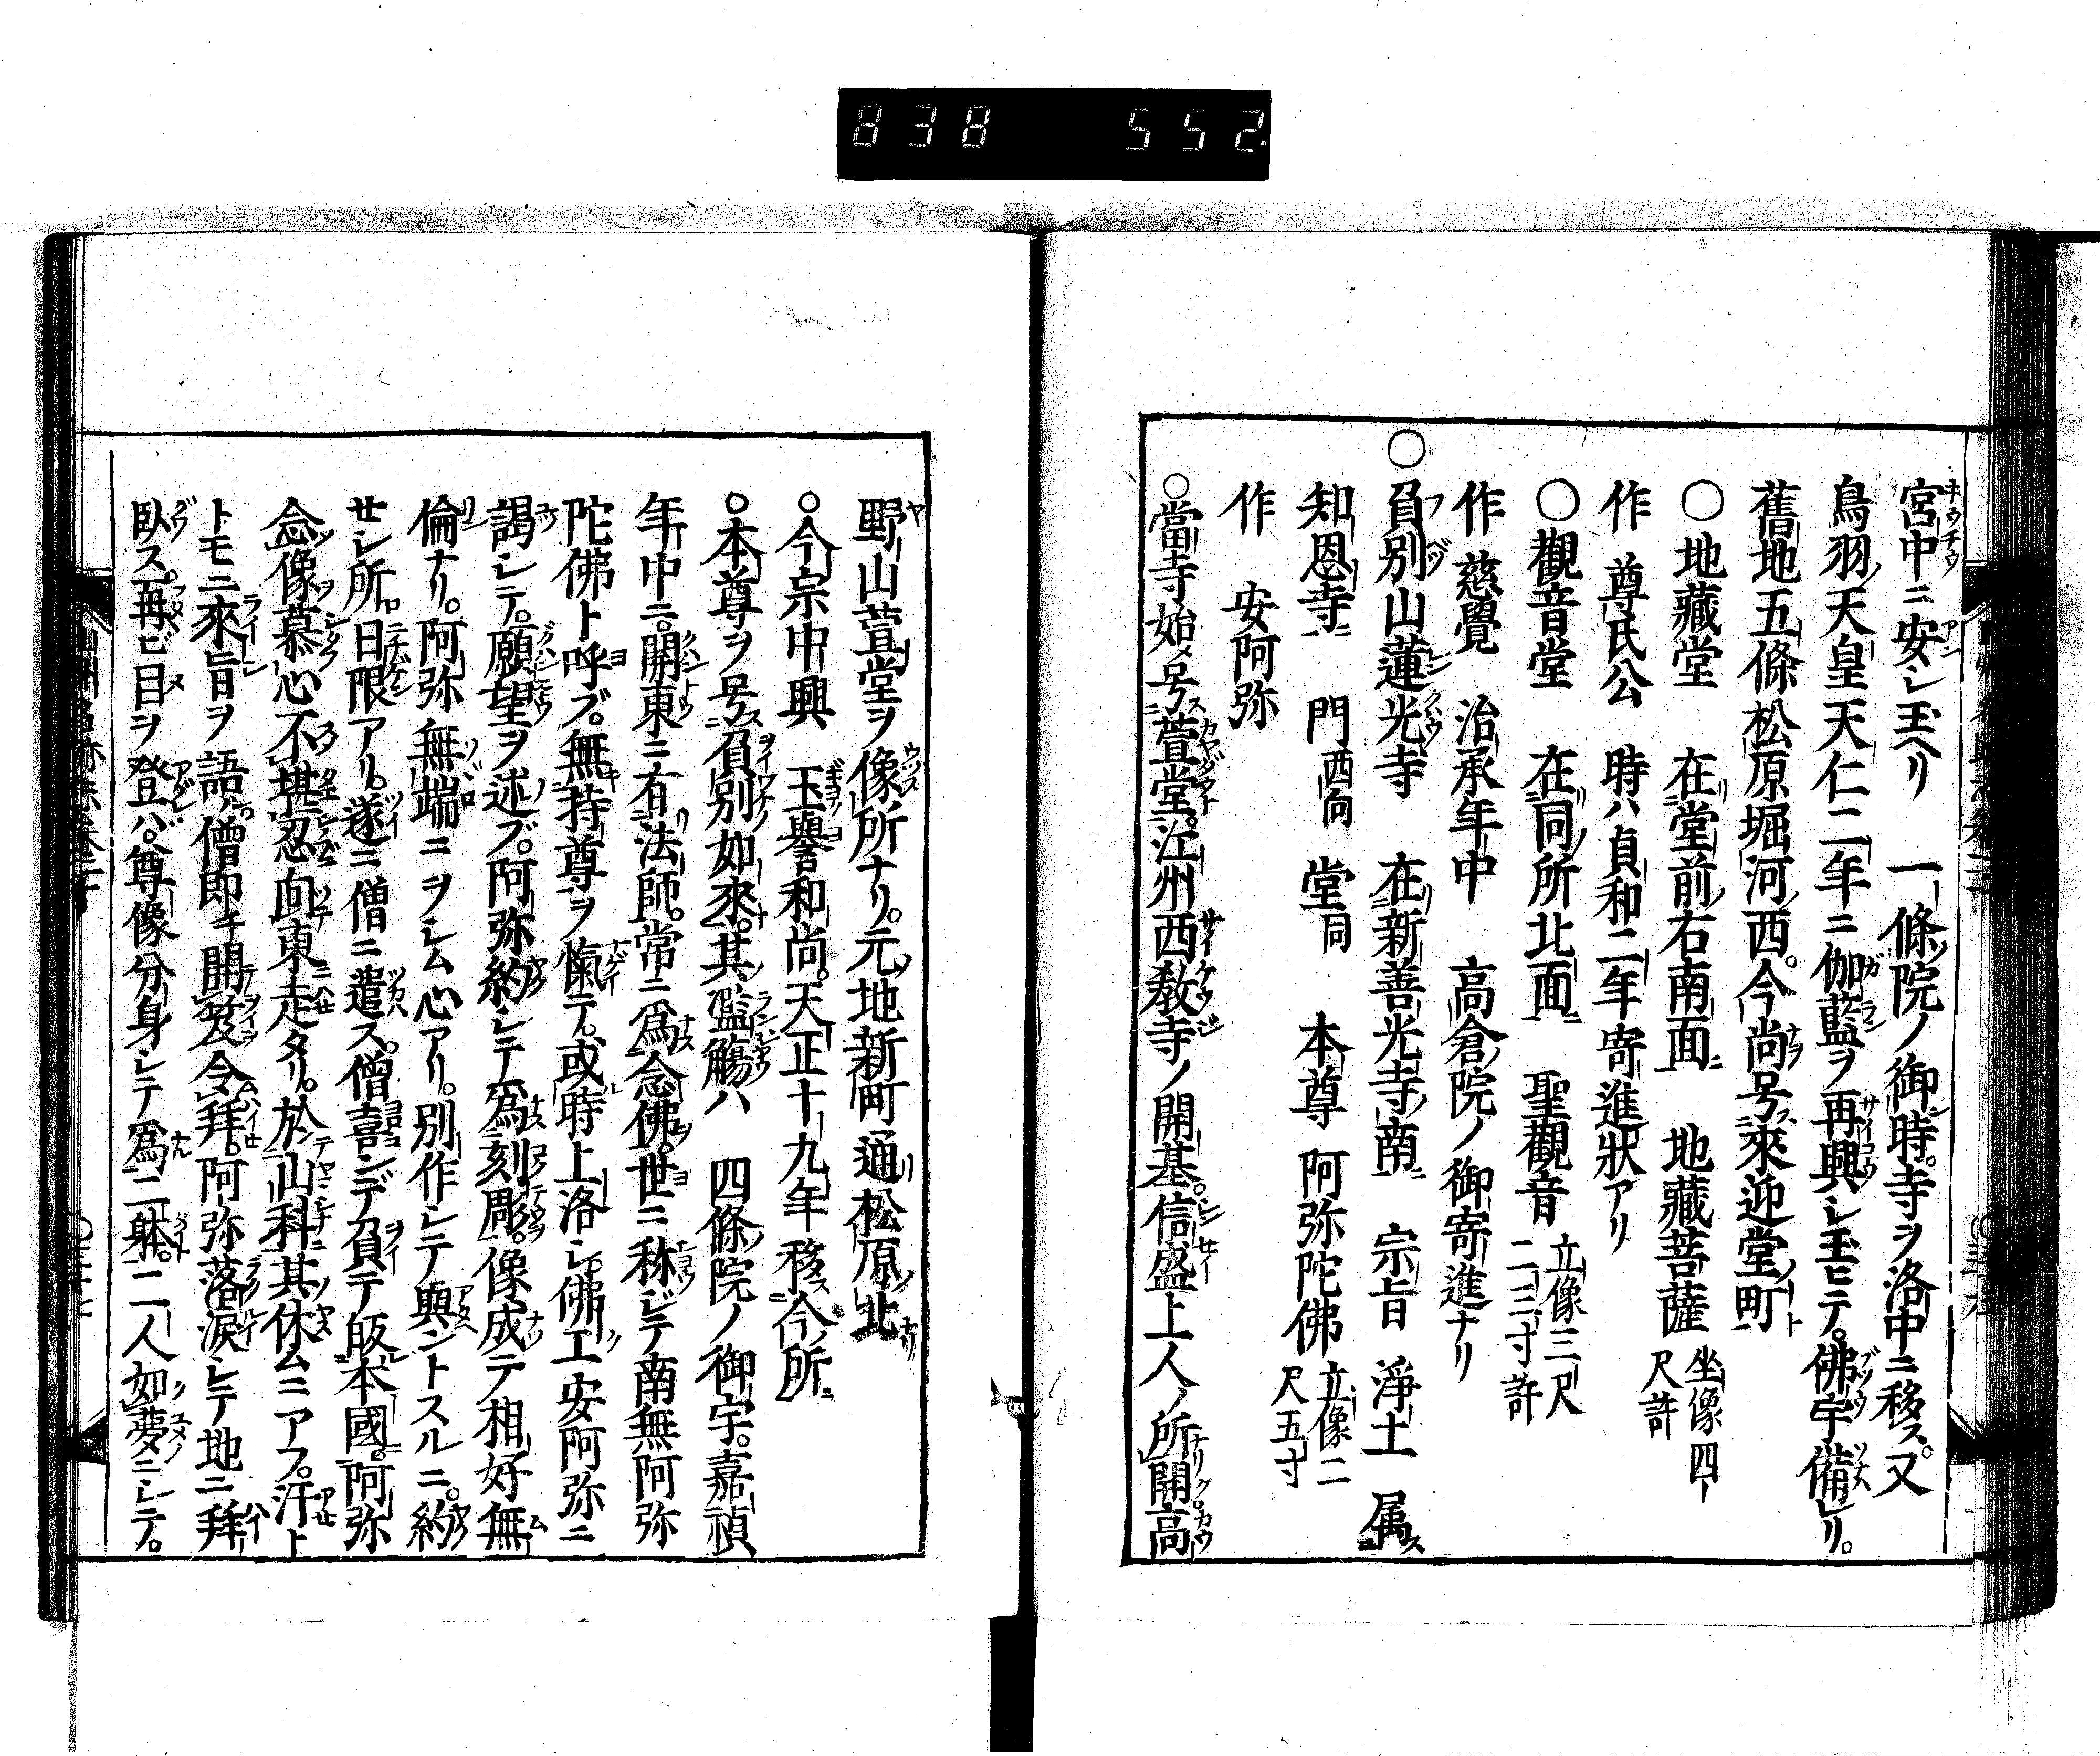 838 552
宮中ニ安シ玉ヘリ 一條院ノ御時。寺ヲ洛中ニ移ス。又
鳥羽ノ天皇天仁二年ニ伽藍ヲ再興シ玉ヒテ。佛宇備レリ。
舊地五條松原堀河ノ西。今尚号ス來迎堂町ト
○地藏堂 在堂前ノ右南面ニ 地藏菩薩 坐像四尺許
作 尊氏公 時ハ貞和二年寄進狀アリ
○觀音堂 在同所北面ニ 聖觀音 立像三尺二三寸許
作 慈覺 治承年中 高倉院ノ御寄進ナリ
○負別山蓮光寺 在新善光寺ノ南ニ 宗旨 淨土 属ス
知恩寺ニ 門西向 堂同 本尊 阿弥陀佛 立像二尺五寸
作 安阿弥
○當寺始メ号ス萱堂ト。江州西教寺ノ開基。信盛上人ノ所開高
野山萱堂ヲ像所ナリ。元ノ地新町通松原ノ北ナリ
○今宗中興 玉譽和尚。天正十九年移ス今ノ所ニ
○本尊ヲ号ス負別如來ト。其ノ濫觴ハ 四條院ノ御宇。嘉禎
年中ニ。開東ニ有リ法師。常ニ爲ス念佛。世ニ称シテ南無阿弥
陀佛ト呼ブ。無持尊ヲ慟テ。或時上洛シ。佛工安阿弥ニ
謁シテ。願望ヲ述ブ。阿弥約シテ爲ス刻彫。像成テ相好無
倫ナリ。阿弥無端ニヲシム心アリ。別作シテ與ントスルニ。約
セシ所ロ日限アリ。遂ニ僧ニ遣ス。僧喜ンデ負テ皈本國ニ。阿弥
念像慕心不堪忍向東走タリ。於山科其休ムニアフ。汗ト
トモニ來旨ヲ語ル。僧即チ開笈令拜。阿弥落涙シテ地ニ拜
臥ス。再ビ目ヲ登バ。尊像分身シテ爲二躰。二人如夢ニシテ。